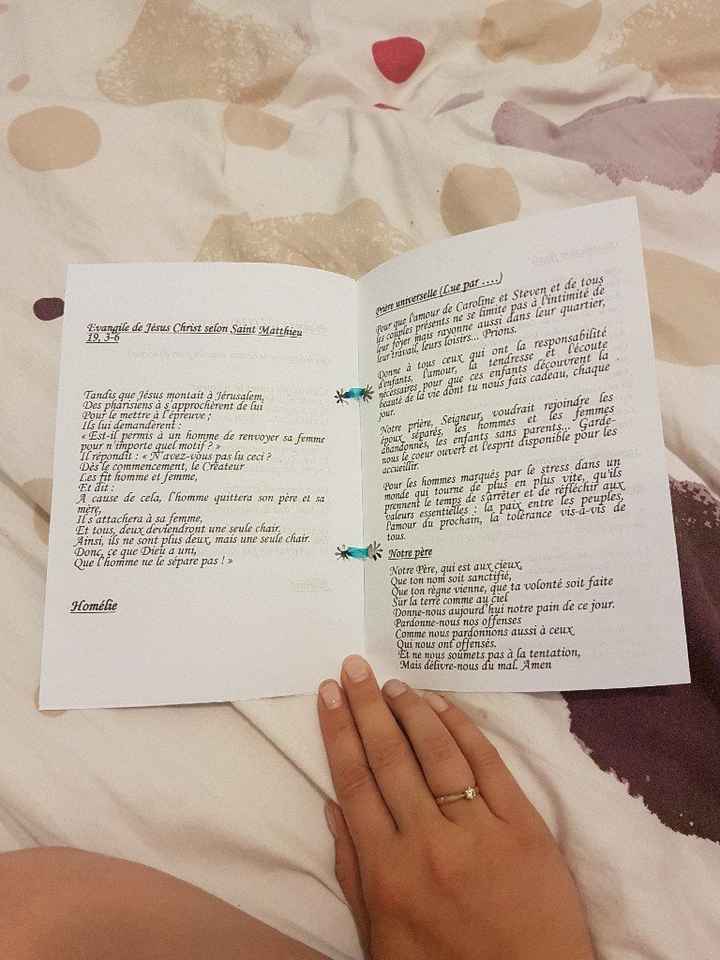 Evangile de Jésus Christ selon Saint Matthieu
19, 3-6
Tandis que Jésus montait à Jérusalem,
Des pharisiens à s'approchèrent de lui
Pour le mettre à l'épreuve ;
Ils lui demandèrent :
« Est-il permis à un homme de renvoyer sa femme
pour n'importe quel motif ? »
Il répondit : « N'avez-vous pas lu ceci ?
Dès le commencement, le Créateur
Les fit homme et femme,
Et dit :
A cause de cela, l'homme quittera son père et sa
mère,
Il s attachera à sa femme,
Et tous, deux deviendront une seule chair.
Ainsi, ils ne sont plus deux, mais une seule chair.
Donc, ce que Dieu a uni,
Que l'homme ne le sépare pas ! »
Homélie
Prière universelle (Lue par ....)
Pour que l'amour de Caroline et Steven et de tous
les couples présents ne se limite pas à l'intimité de
leur foyer mais rayonne aussi dans leur quartier,
leur travail, leurs loisirs... Prions.
Donne à tous ceux qui ont la responsabilité
d'enfants, l'amour, la tendresse et l'écoute
nécessaires pour que ces enfants découvrent la
beauté de la vie dont tu nous fais cadeau, chaque
jour.
Notre prière, Seigneur, voudrait rejoindre les
époux séparés, les hommes et les femmes
abandonnés, les enfants sans parents... Garde-
nous le coeur ouvert et l'esprit disponible pour les
accueillir.
Pour les hommes marqués par le stress dans un
monde qui tourne de plus en plus vite, qu'ils
prennent le temps de s'arrêter et de réfléchir aux
valeurs essentielles : la paix entre les peuples,
l'amour du prochain, la tolérance vis-à-vis de
tous.
Notre père
Notre Père, qui est aux cieux,
Que ton nom soit sanctifié,
Que ton règne vienne, que ta volonté soit faite
Sur la terre comme au ciel
Donne-nous aujourd'hui notre pain de ce jour.
Pardonne-nous nos offenses
Comme nous pardonnons aussi à ceux
Qui nous ont offensés.
Et ne nous soumets pas à la tentation,
Mais délivre-nous du mal. Amen